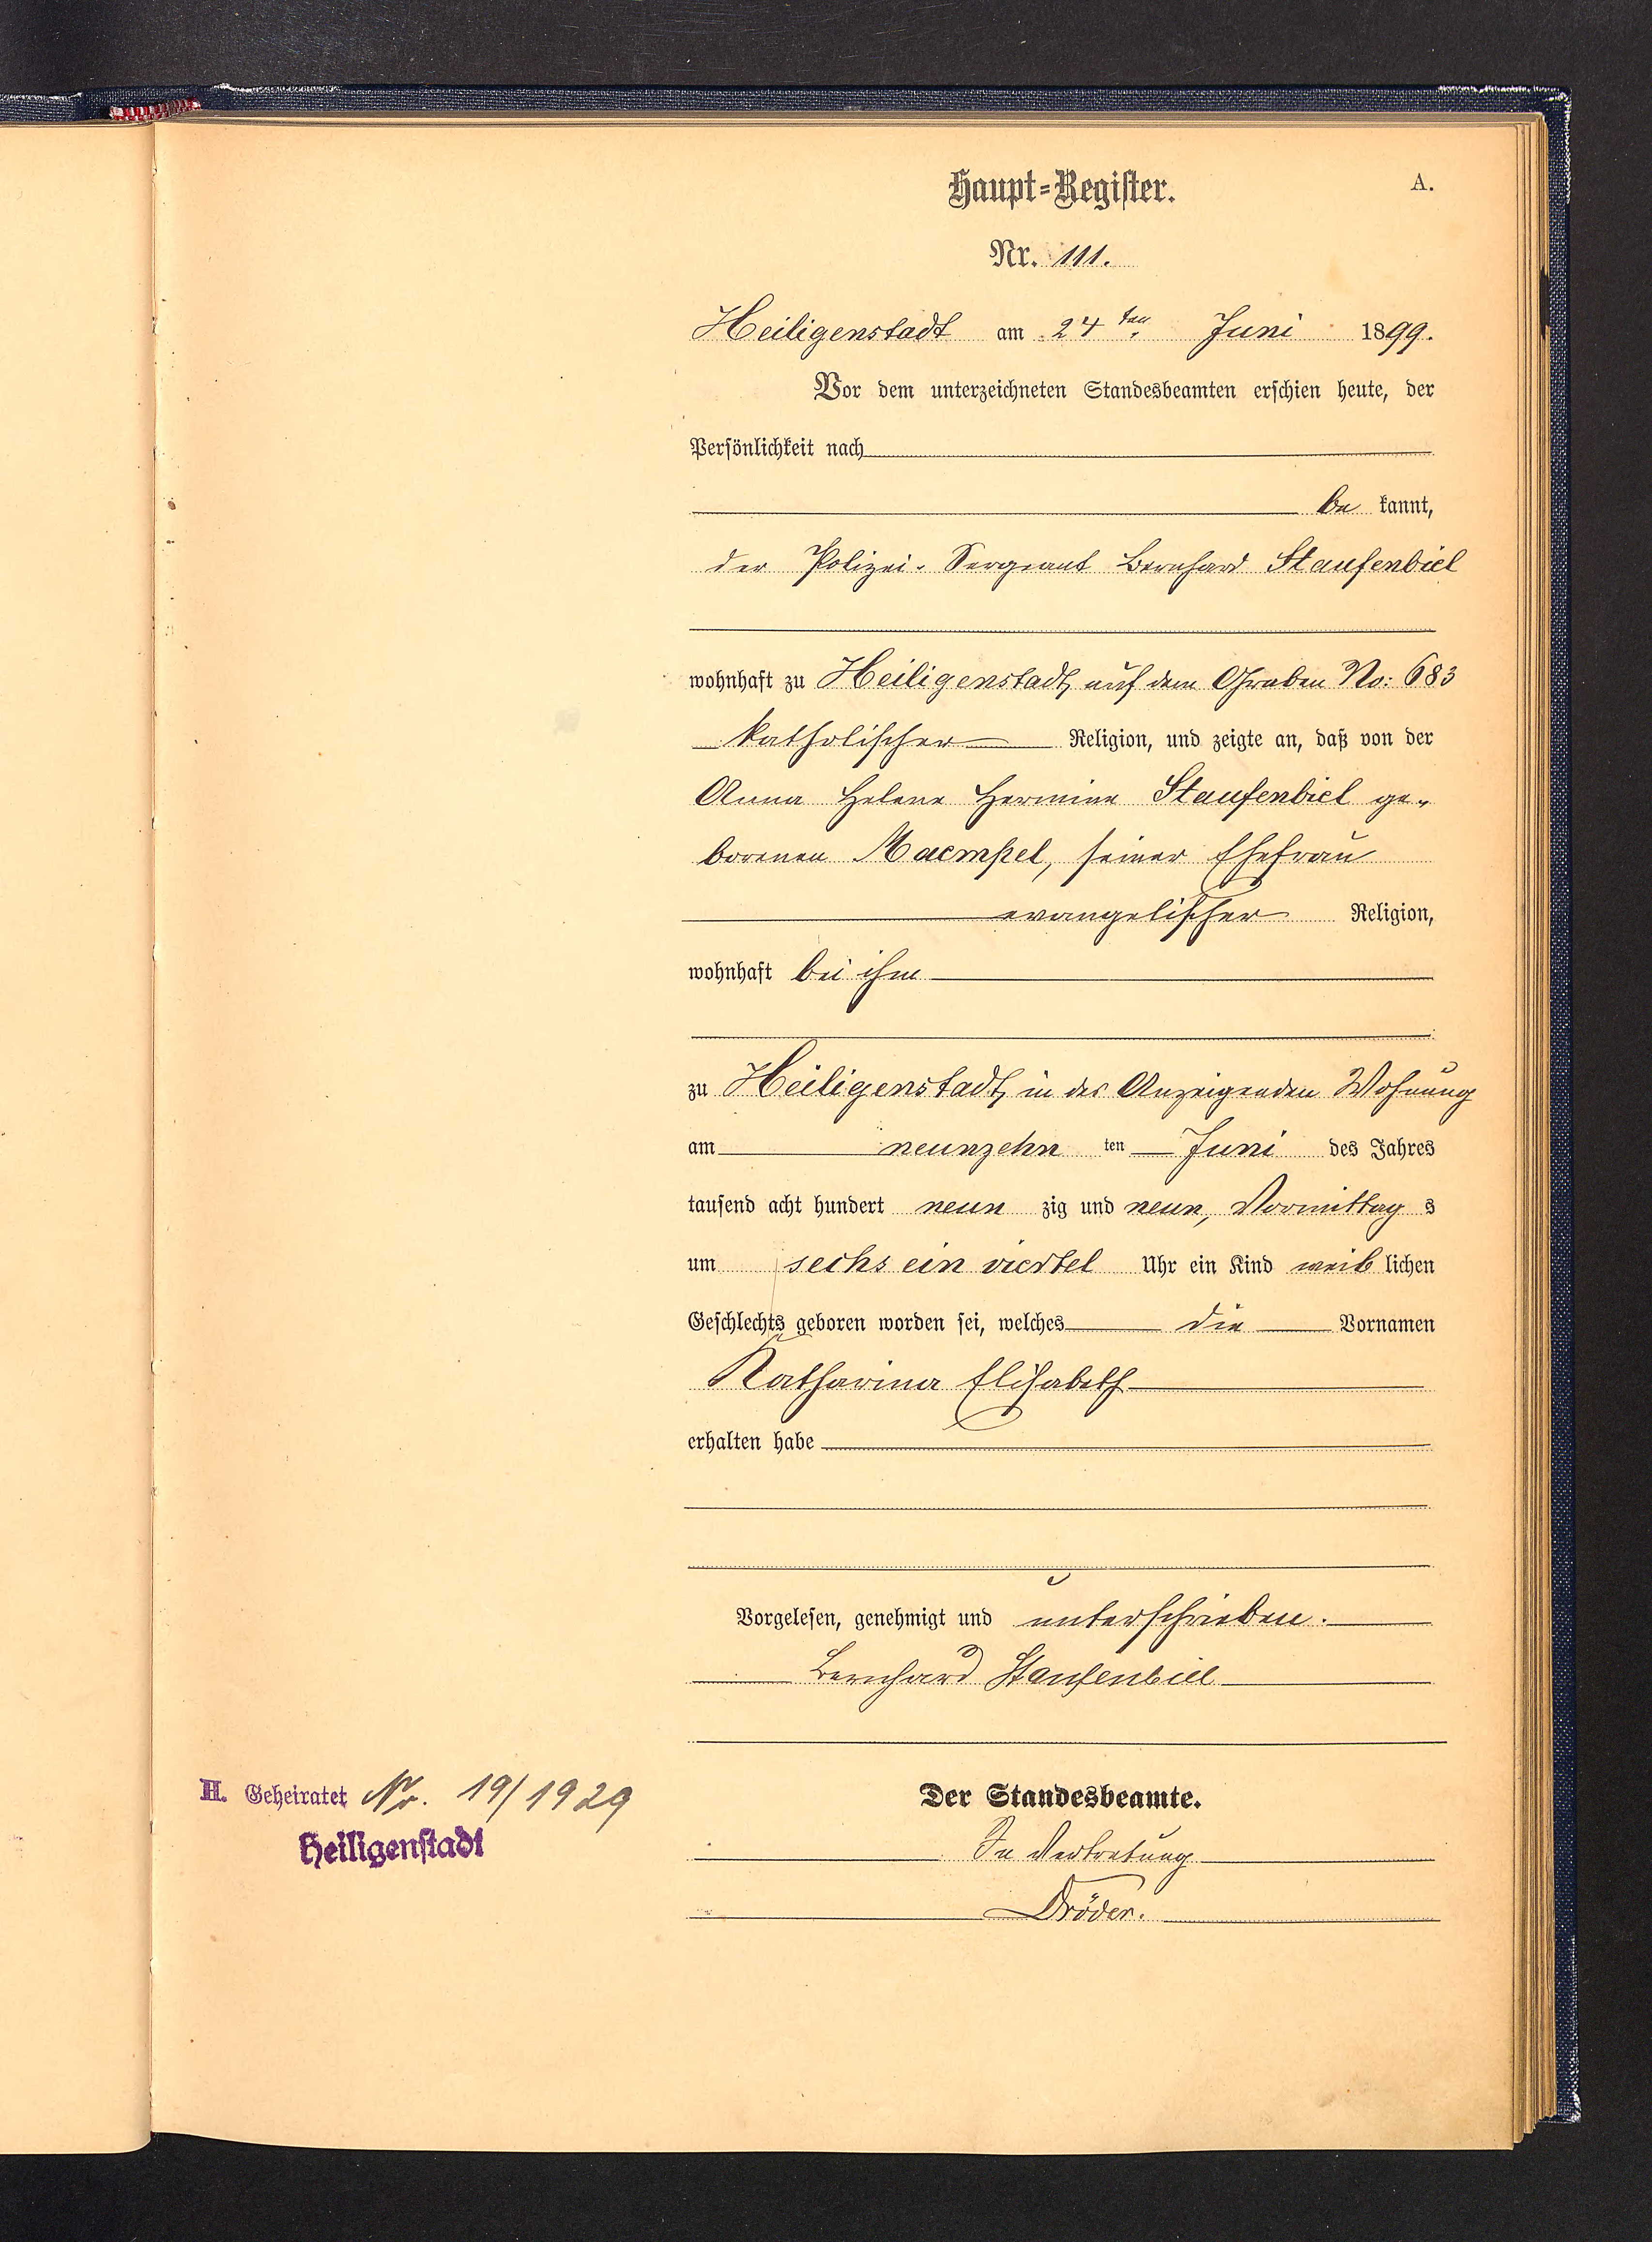 Haupt-Register.
A.
Nr. 111.
Heiligenstadt am 24ten Juni 1899.
Vor dem unterzeichneten Standesbeamten erschien heute, der
Persönlichkeit nach
be kannt,
der Polizei-Sergeant Bernhard Staufenbiel
wohnhaft zu Heiligenstadt, auf dem Graben No: 683
katholischer Religion, und zeigte an, daß von der
Anna Helene Hermine Staufenbiel ge-
borenen Maempel, seiner Ehefrau
evangelischer Religion,
wohnhaft bei ihm
zu Heiligenstadt, in des Anzeigenden Wohnung
am neunzehn ten Juni des Jahres
tausend acht hundert neun zig und neun, Vormittag s
um sechs ein viertel Uhr ein Kind weib lichen
Geschlechts geboren worden sei, welches die Vornamen
Katharina Elisabeth
erhalten habe
Vorgelesen, genehmigt und unterschrieben.
Bernhard Staufenbiel
Der Standesbeamte.
In Vertretung
Dröder.
H. Geheiratet Nr. 19/1929
Heiligenstadt